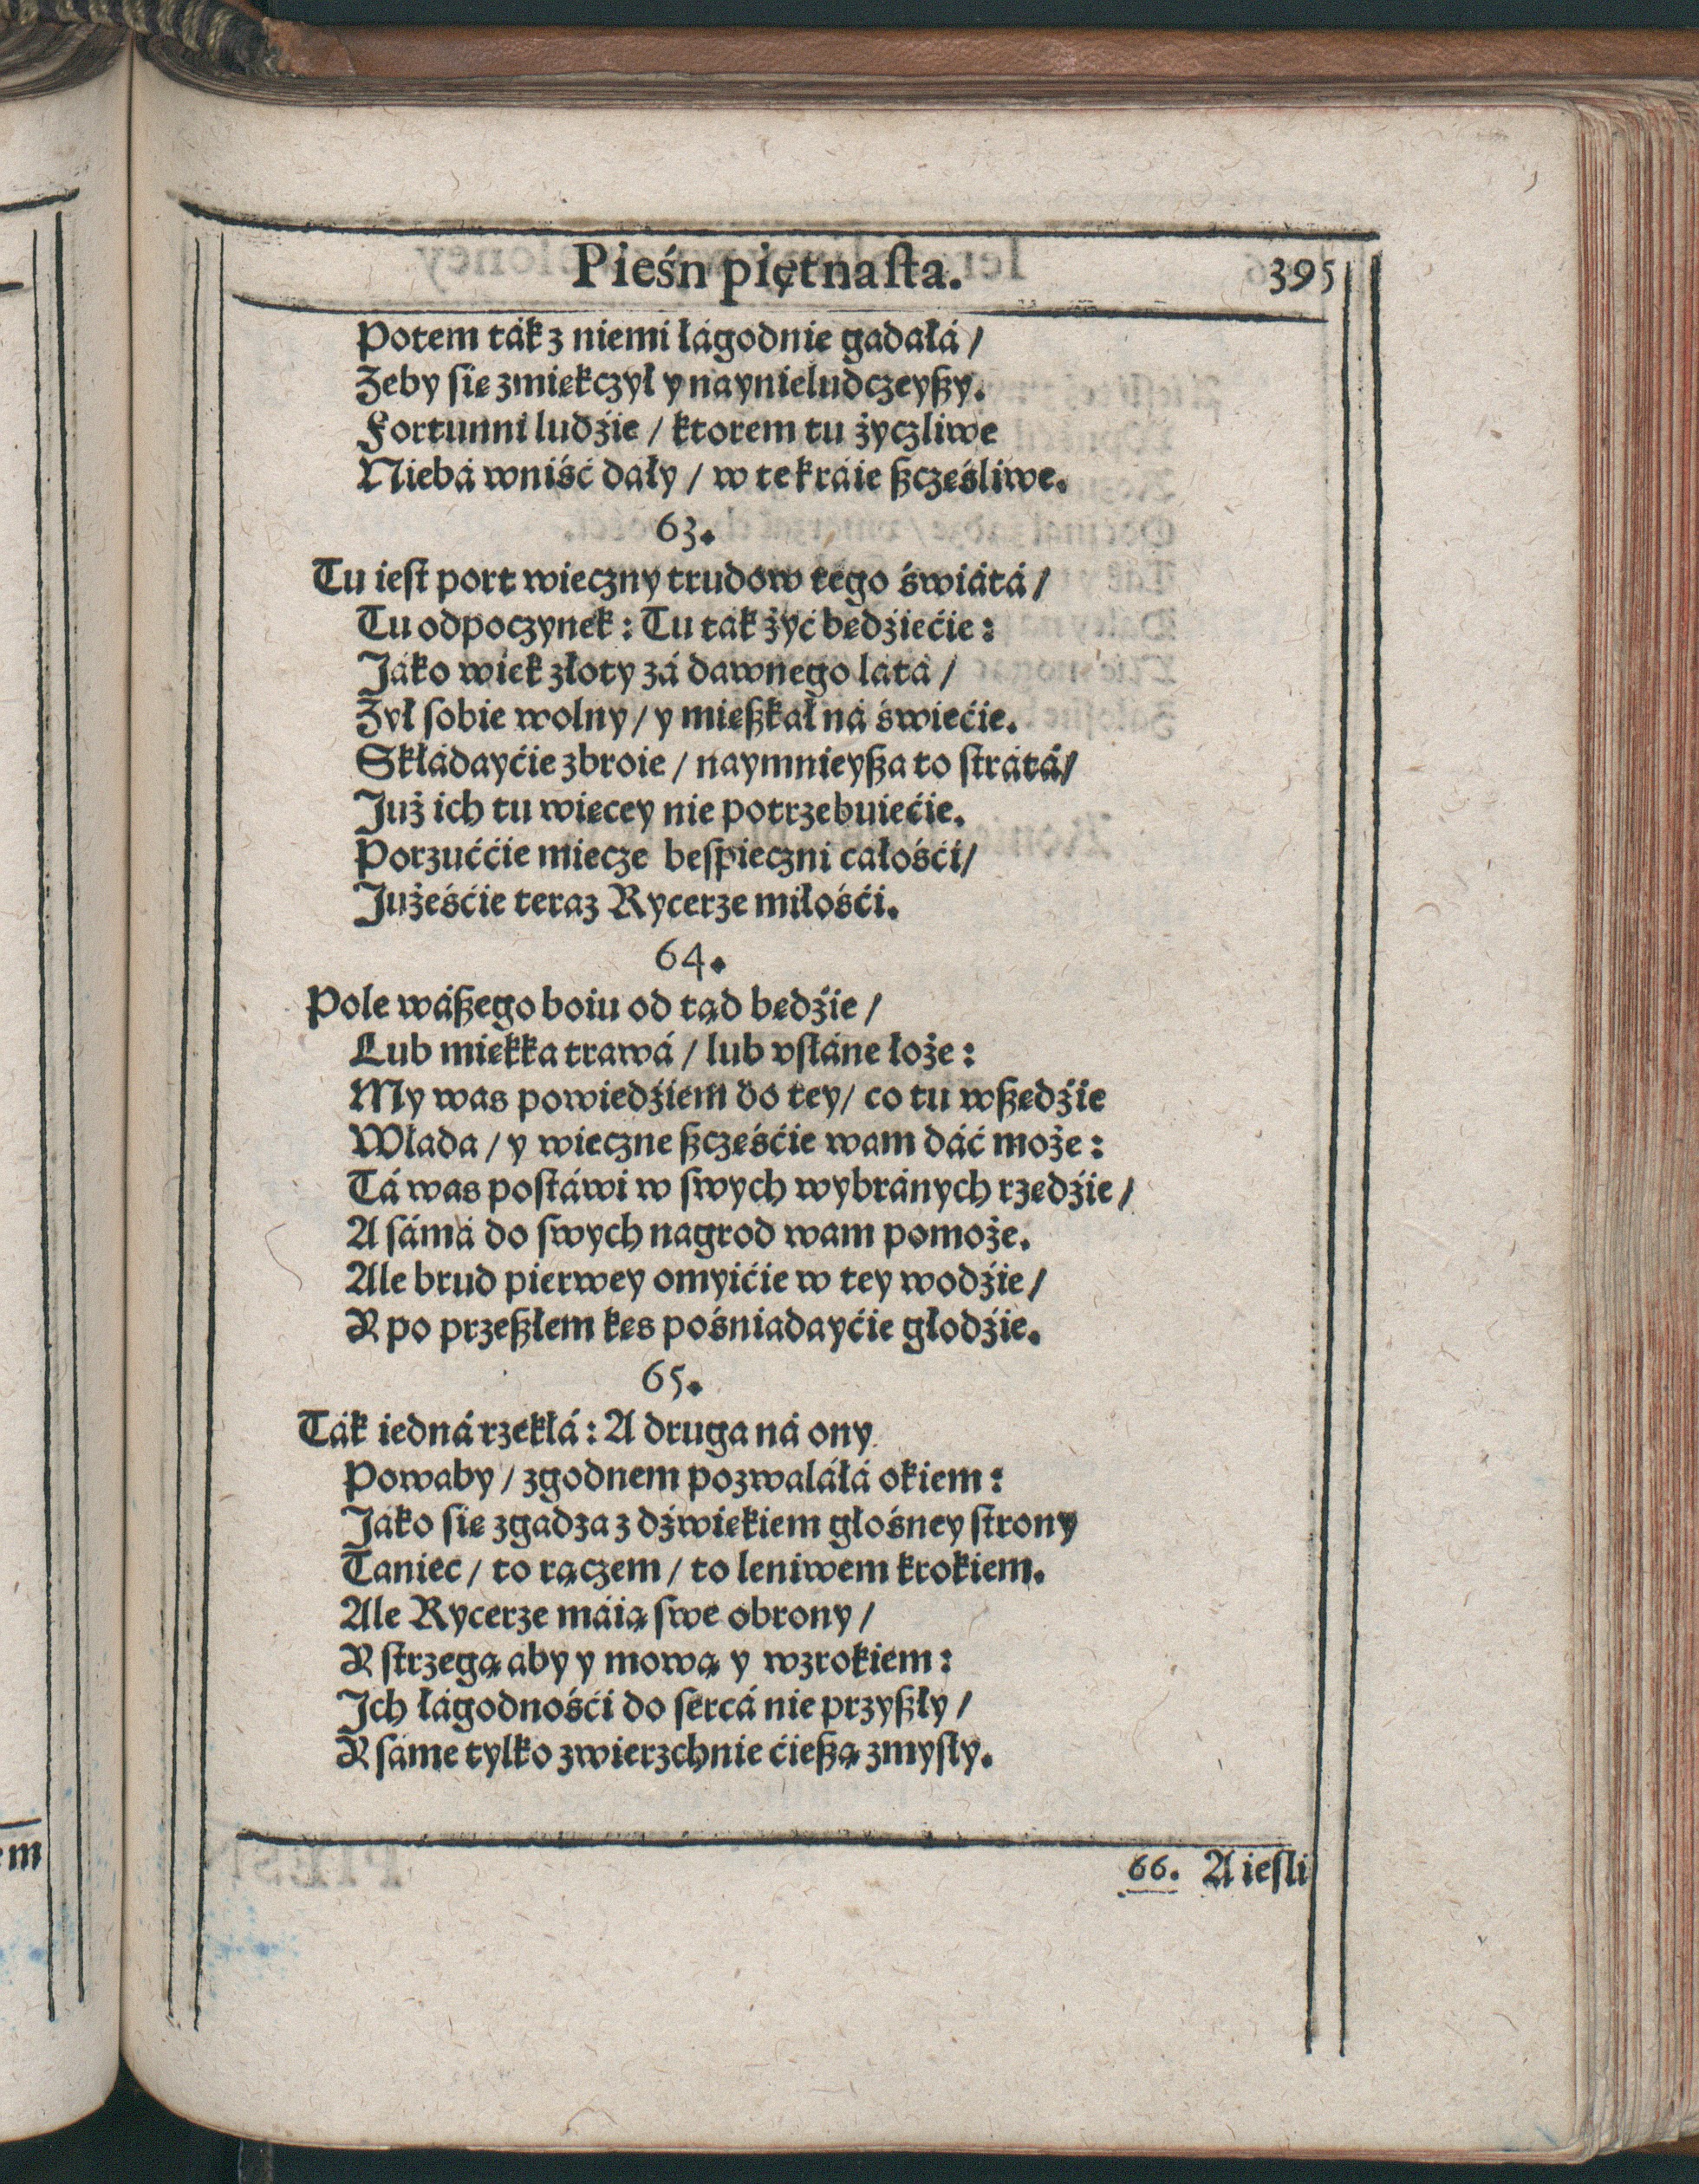 Pieśn piętnaſta. 395
Potem ták z niemi łágodnie gadáłá /
Żeby ſię zmiękczył y naynieludczeyßy.
Fortunni ludźie / ktorem tu życzliwe
Niebá wniść dáły / w te kráie ßczęśliwe.
63.
Tu ieſt port wieczny trudow tego świátá /
Tu odpoczynek : Tu ták żyć będźiećie :
Jáko wiek złoty zá dawnego látá /
Żył ſobie wolny / y mießkał ná świećie.
Składayćie zbroie / naymnieyßa to ſtrátá /
Już ich tu więcey nie potrzebuiećie.
Porzuććie miecze beſpieczni całośći /
Jużeśćie teraz Rycerze miłośći.
64.
Pole wáßego boiu od tąd będźie /
Lub miękka trawá / lub vſłáne łoże :
My was powiedźiem do tey / co tu wßędźie
Włada / y wieczne ßczęśćie wam dáć może :
Tá was poſtáwi w ſwych wybránych rzędźie /
A ſámá do ſwych nagrod wam pomoże.
Ale brud pierwey omyićie w tey wodźie /
Y po przeßłem kęs pośniadayćie głodźie.
65.
Ták iedná rzekłá : A druga ná ony
Powaby / zgodnem pozwaláłá okiem :
Jáko ſię zgadza z dźwiękiem głośney ſtrony
Taniec / to rączem / to leniwem krokiem.
Ale Rycerze máią ſwe obrony /
Y ſtrzegą aby y mową y wzrokiem :
Ich łágodnośći do ſercá nie przyßły /
Y ſáme tylko zwierzchnie ćießą zmyſły.
66. A ieſli